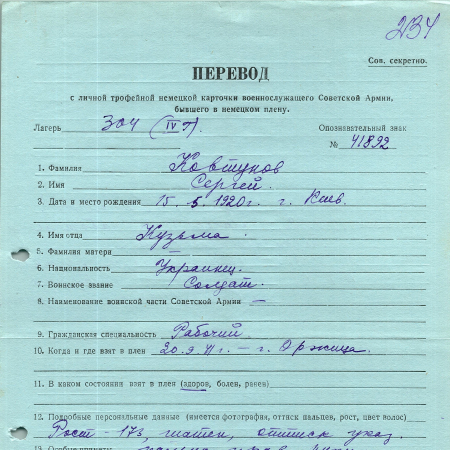 234
Сов. секретно.
ПЕРЕВОД
с личной трофейной немецкой карточки военнослужащего Советской Армии,
бывшего в немецком плену.
Лагерь 304 (IV Э). Опознавательный знак
№ 41892
1. Фамилия Ковтунов
2. Имя Сергей.
3. Дата и место рождения 15. 5. 1920 г. г. Киев.
4. Имя отца Кузьма.
5. Фамилия матери
6. Национальность Украинец.
7. Воинское звание Солдат.
8. Наименование воинской части Советской Армии —
9. Гражданская специальность Рабочий
10. Когда и где взят в плен 20. 9. 41 г. — г. Оржица.
11. В каком состоянии взят в плен (здоров, болен, ранен)
12. Подробные персональные данные (имеется фотография, оттиск пальцев, рост, цвет волос)
Рост - 173, шатен, оттиск указ.
13. Особые приметы